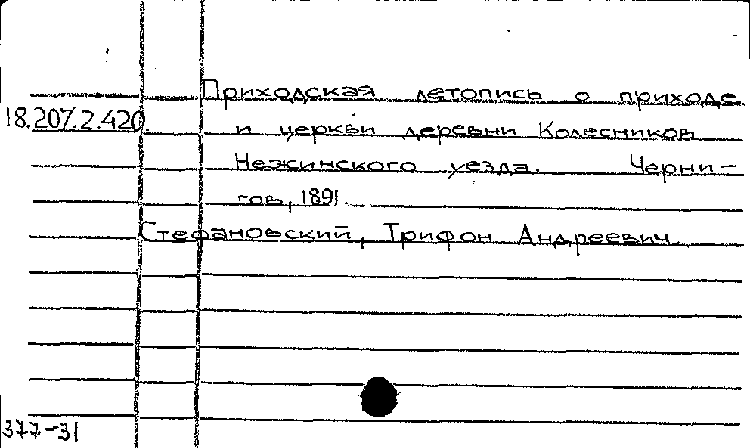 Приходская летопись о приходе
18.207.2.420 и церкви деревни Колесников
Нежинского уезда. Черни-
гов, 1891
Стефановский, Трифон Андреевич
377-31